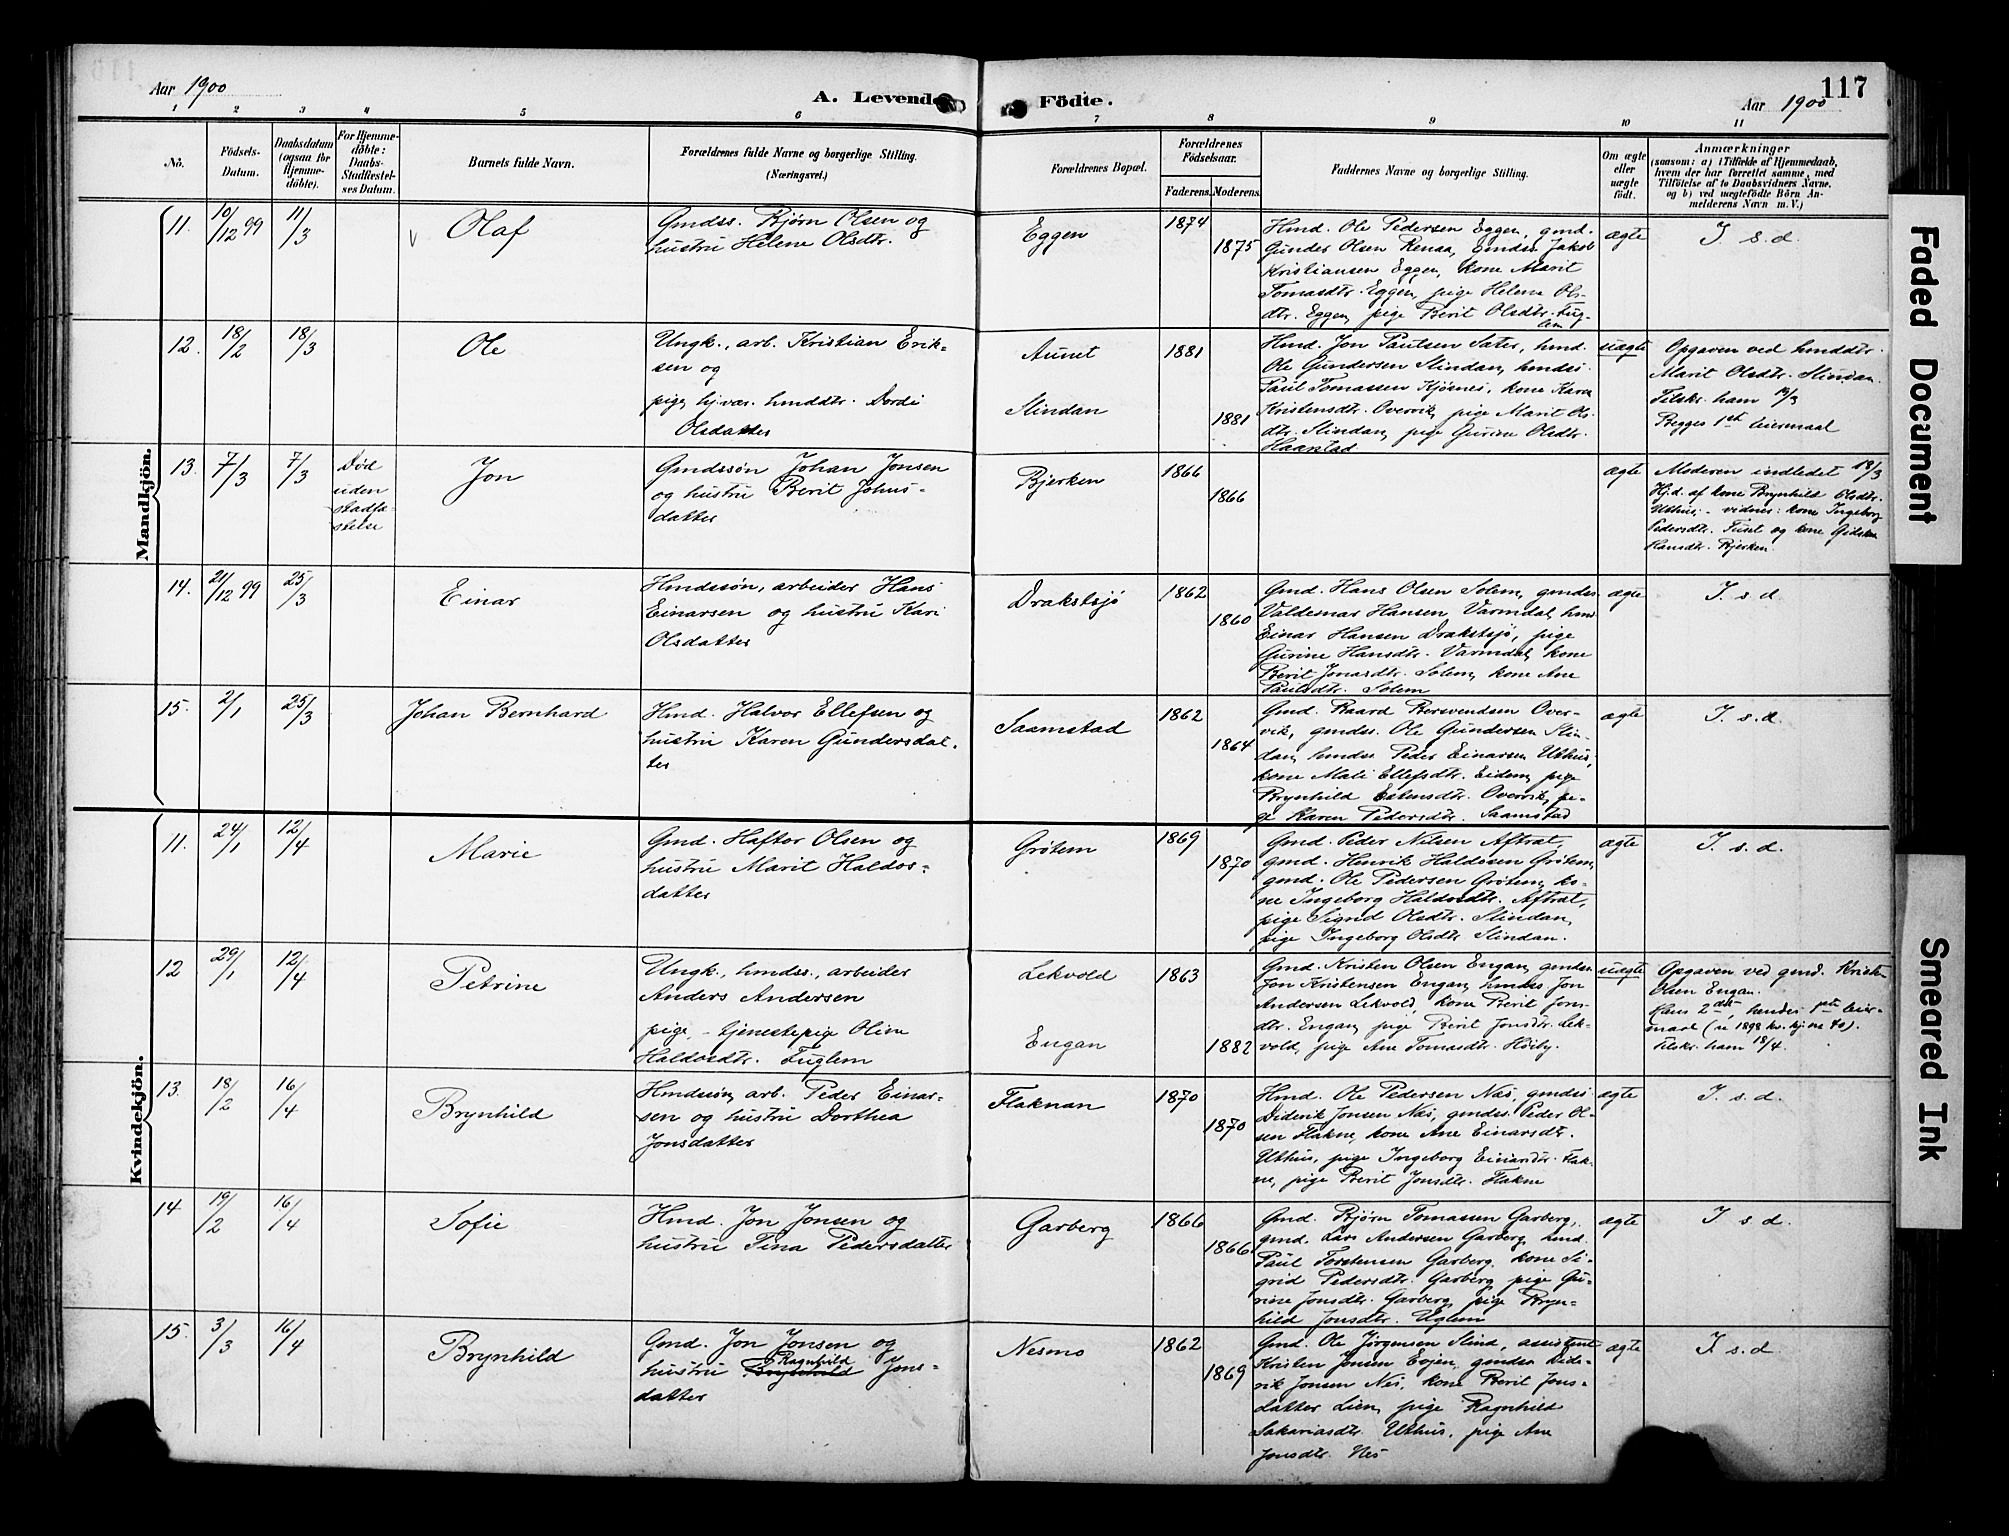 Aar 1900
A. Levende Födte.
117
Aar 1900
1 2 3 4 5 6 7 8 9 10 11
No.
Födsels-
Datum.
Daabsdatum
(ogsaa for
Hjemme-
döbte).
For Hjemme-
döbte:
Daabs-
Stadfæstel-
ses Datum.
Barnets fulde Navn.
Forældrenes fulde Navne og borgerlige Stilling.
(Næringsvei.)
Forældrenes Bopæl.
Forældrenes
Födselsaar.
Faderens. Moderens.
Faddernes Navne og borgerlige Stilling.
Om ægte
eller
uægte
födt.
Anmærkninger
(saasom: a) i Tilfælde af Hjemmedaab,
hvem der har forrettet samme, med
Tilföielse af to Daabsvidners Navne,
og b) ved uægtefödte Börn An-
melderens Navn m. V.)
Mandkjön.
11. 10/12 99 11/3
Olaf
Gmdss. Bjørn Olsen og
hustru Helene Olsdtr.
Eggen
1874
1875
Hmd. Ole Pedersen Eggen, gmd.
Gunder Olsen Renaa, gmdss. Jakob
Kristiansen Eggen, kone Marit
Tomasdtr. Eggen, pige Helene Ols-
dtr. Eggen, pige Berit Olsdtr. Fug-
lem
ægte
I s.d.
12. 18/2 18/3
Ole
Ungk., arb. Kristian Erik-
sen og
pige, hj.vær. hmddtr. Dordi
Olsdatter
Aunet
Slindan
1881
1881
Hmd. Jon Paulsen Sæter, hmd.
Ole Gundersen Slindan, hmdss.
Paul Tomassen Kjøsnes, kone Karen
Kristensdtr. Overvik, pige Marit Ols-
dtr. Slindan, pige Gurine Olsdtr.
Haarstad
uægte
Opgaven ved hmddtr.
Marit Olsdtr. Slindan.
Tilskr. ham 19/3
Begges 1ste leiermaal
13. 7/3 7/3
Død
uden
stadfæ-
stelse
Jon
Gmdssøn Johan Jonsen
og hustru Berit Johns-
datter
Bjerken
1866
1866
ægte
Moderen indledet 18/3
Hj.d. af kone Brynhild Olsdtr.
Uthus; - vidner: kone Ingeborg
Pedersdtr. Tuset og kone Gidsken
Hansdtr. Bjerken.
14. 21/12 99 25/3
Einar
Hmdssøn, arbeider Hans
Einarsen og hustru Kari
Olsdatter
Drakstsjø
1862
1860
Gmd. Hans Olsen Solem, gmdss.
Valdemar Hansen Varmdal, hmd
Einar Hansen Drakstsjø, pige
Gurine Hansdtr. Varmdal, kone
Berit Jonasdtr. Solem, kone Ane
Paulsdtr. Solem
ægte
I s d
15. 2/1 25/3
Johan Bernhard
Hmd. Halvor Ellefsen og
hustru Karen Gundersdat-
ter
Saamstad
1862
1864
Gmd. Baard Bersvendsen Over-
vik, gmdss. Ole Gundersen Slin-
dan, hmdss Peder Einarsen Uthus,
kone Mali Ellefsdtr. Eidem, pige
Brynhild Estensdtr. Overvik, pi-
ge Karen Pedersdtr. Saamstad
ægte
I. s. d.
Kvindekjön.
11. 24/1 12/4
Marie
Gmd. Haftor Olsen og
hustru Marit Haldos-
datter
Grøtem
1869
1870
Gmd. Peder Nilsen Aftret,
gmd. Henrik Haldosen Grøtem,
gmd. Ole Pedersen Grøtem, ko-
ne Ingeborg Haldosdtr. Aftret,
pige Sigrid Olsdtr. Slindan,
pige Ingeborg Olsdtr Slindan.
ægte
I. s. d.
12 29/1 12/4
Petrine
Ungk., hmdss., arbeider
Anders Andersen
pige, - tjenestepige Oline
Haldosdtr. Fuglem
Lekvold
Engan
1863
1882
Gmd. Kristen Olsen Engan, gmdss.
Jon Kristensen Engan, hmdss Jon
Andersen Lekvold, kone Berit Jons-
dtr. Engan, pige Berit Jonsdtr. Lek-
vold, pige Ane Tomasdtr. Høiby.
uægte
Opgaven ved gmd. Kristen
Olsen Engan.
Hans 2det, hendes 1ste leier-
maal (u 1898 kv. kj. no 40).
Tilskr. ham 18/4.
13. 18/2 16/4
Brynhild
Hmdssøn, arb. Peder Einar-
sen og hustru Dorthea
Jonsdatter
Flaknan
1870
1870
Hmd. Ole Pedersen Næs, gmdss
Diderik Jonsen Næs, gmdss. Peder Ol-
sen Flakne, kone Ane Einarsdtr.
Uthus, pige Ingeborg Einarsdtr. Flak-
ne, pige Berit Jonsdtr. Flakne
ægte
I. s. d.
14 19/2 16/4
Sofie
Hmd. Jon Jonsen og
hustru Tina Pedersdatter
Garberg
1866
1866
Gmd. Bjørn Tomassen Garberg,
gmd. Lars Andersen Garberg, hmd.
Paul Torstensen Garberg, kone Si-
grid Pedersdtr. Garberg, pige Gu-
rine Jonsdtr. Garberg, pige Bryn-
hild Jonsdtr. Uglem
ægte
I s d.
15. 3/3 16/4
Brynhild
Gmd. Jon Jonsen og
Ragnhild
hustru Brynhild Jons-
datter
Nesmo
1862
1869
Gmd. Ole Jörgensen Slind, assistent
Kristen Jonsen Evjen, gmdss Dide-
rik Jonsen Nes, kone Berit Jons-
datter Lien, pige Ragnhild
Sakariasdtr. Uthus, pige Ane
Jonsdtr. Nes
ægte
I s. d.
Faded Document
Smeared Ink